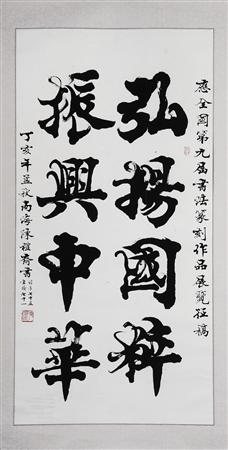 應全國第九屆書法篆刻作品展覽征稿
弘揚國粹
振興中華
丁亥年孟秋南海陳齋書